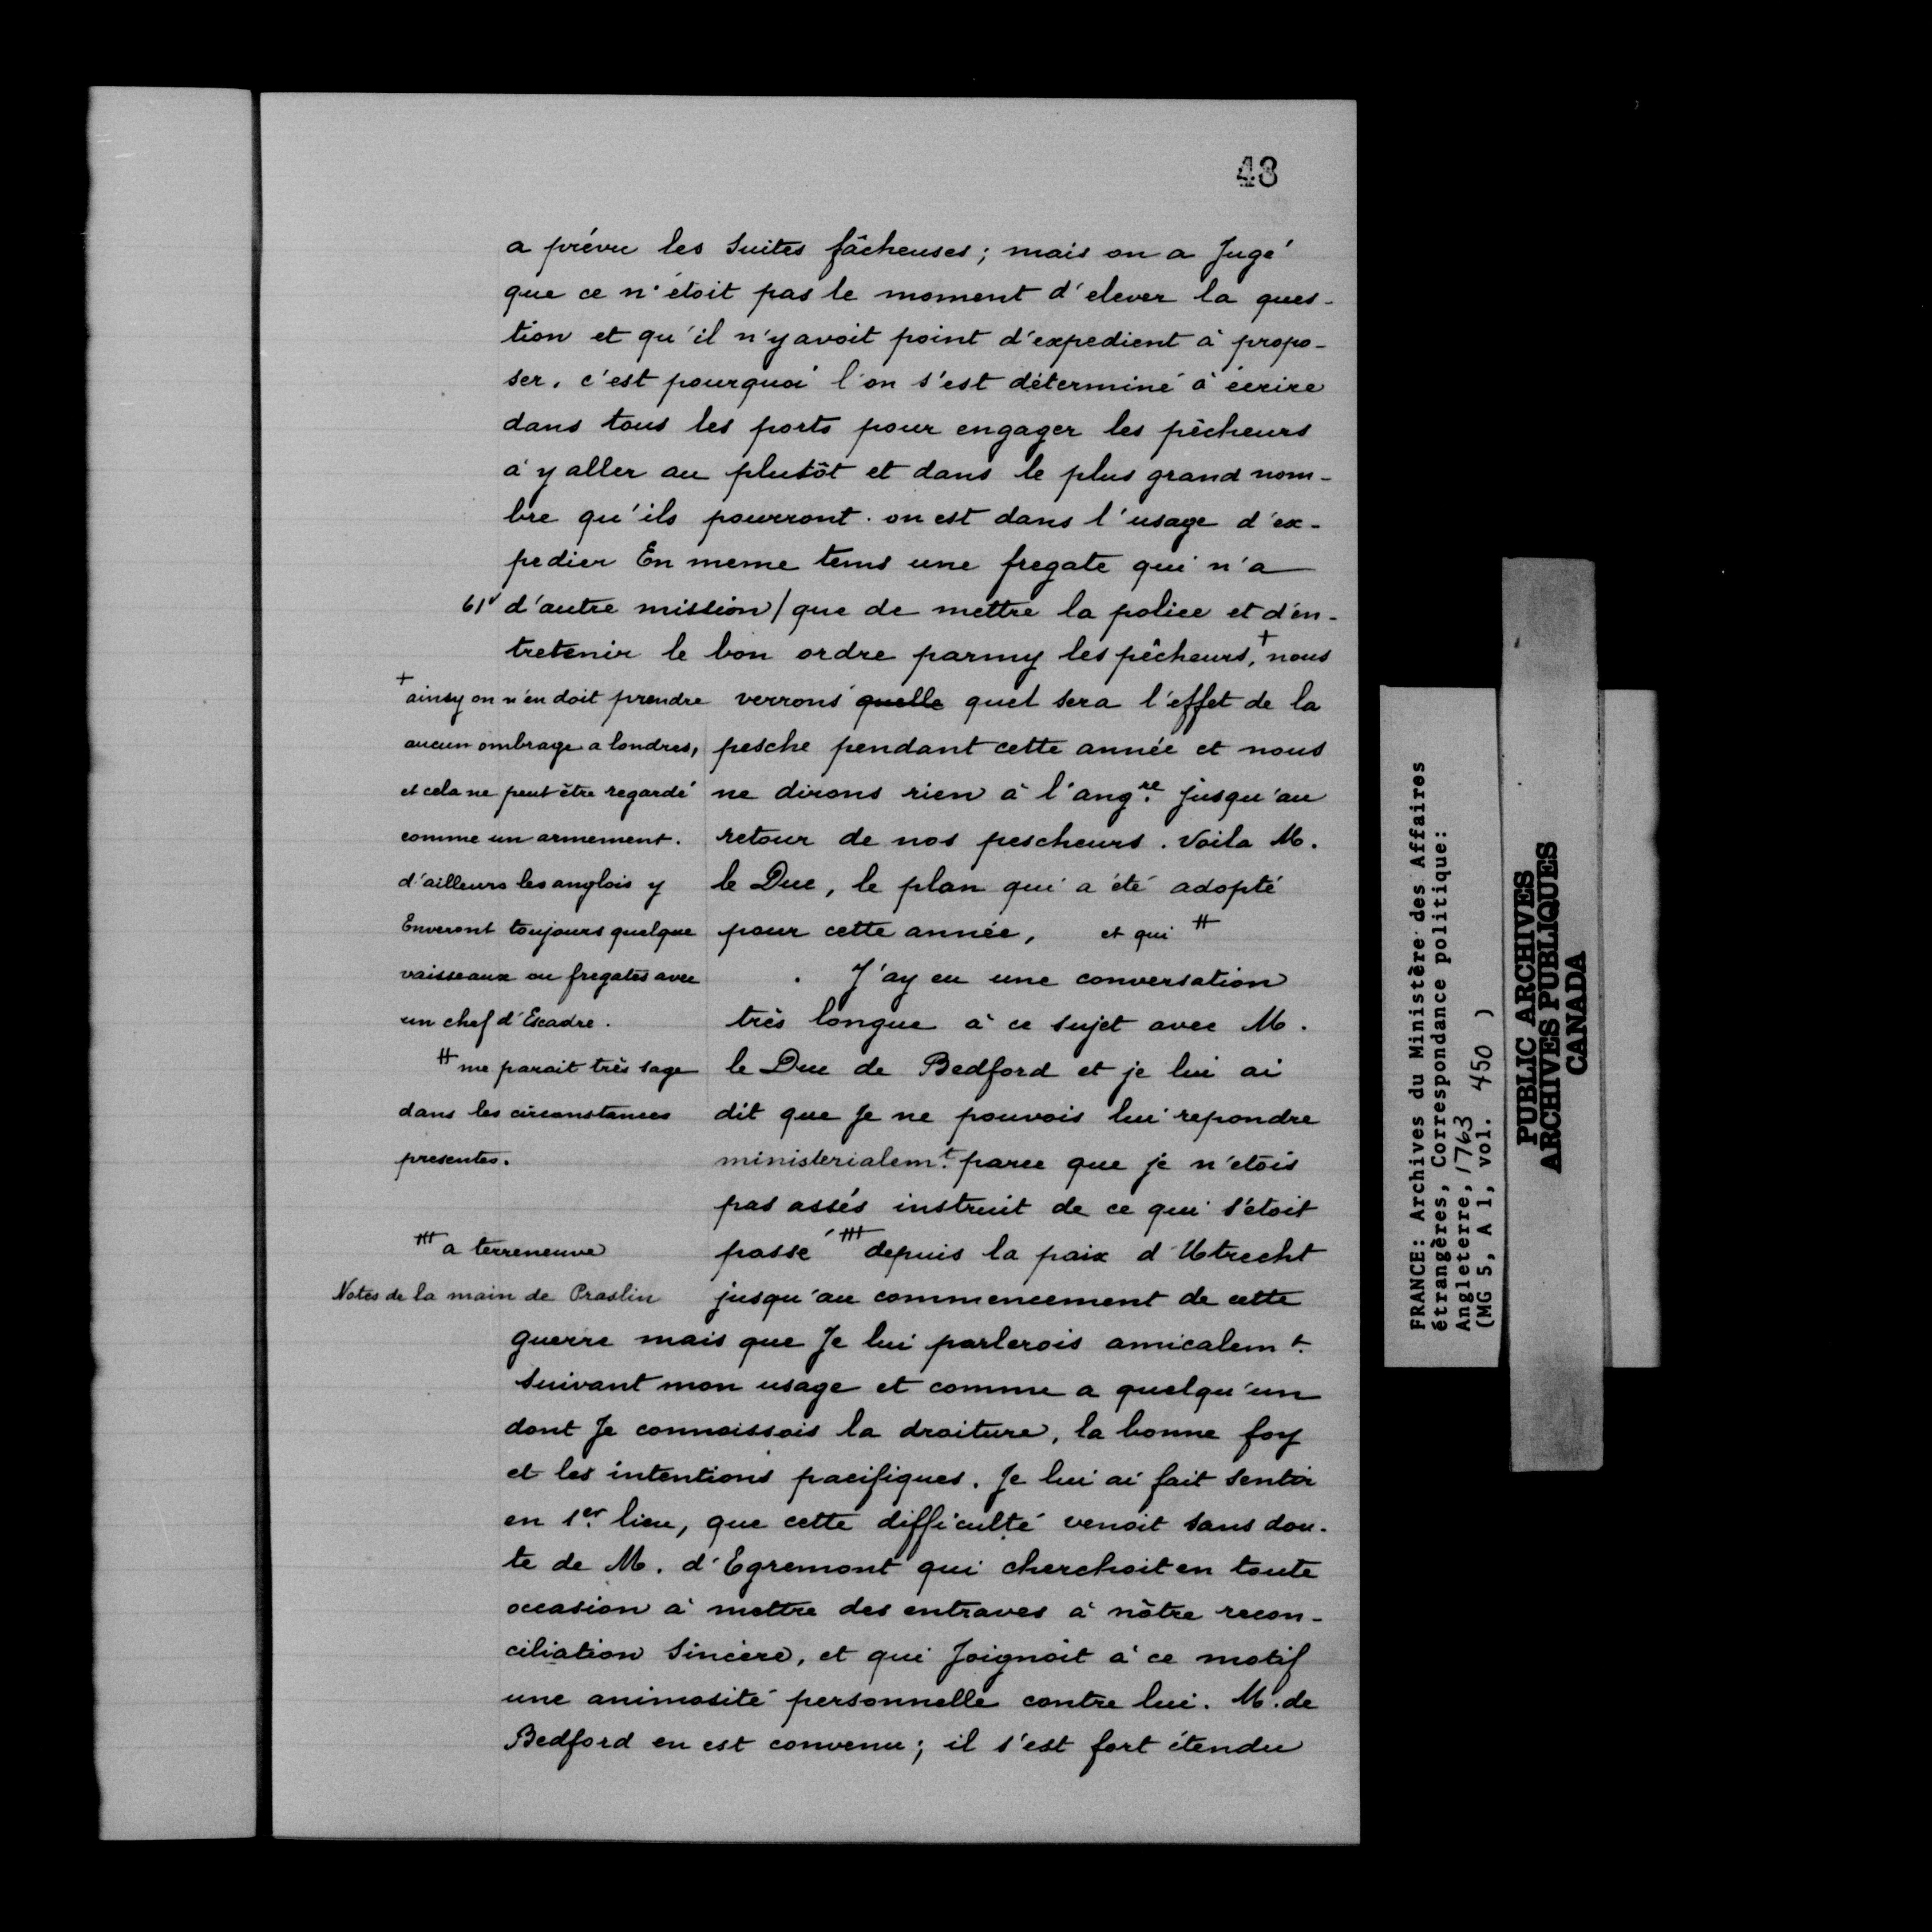 48
a prévu les Suites fâcheuses; mais on a Jugé
que ce n'étoit pas le moment d'elever la ques-
tion et qu'il n'y avoit point d'expedient à propo-
ser, c'est pourquoi l'on s'est déterminé à écrire
dans tous les ports pour engager les pêcheurs
a y aller au plutôt et dans le plus grand nom-
bre qu'ils pourront. on est dans l'usage d'ex-
pedier En meme tems une fregate qui n'a
61v d'autre mission / que de mettre la police et d'en-
tretenir le bon ordre parmy les pêcheurs, + nous
verrons quelle quel sera l'effet de la
pesche pendant cette année et nous
ne dirons rien à l'angre. jusqu'au
retour de nos pescheurs. Voila M.
le Duc, le plan qui a été adopté
pour cette année, et qui ++
. J'ay eu une conversation
très longue à ce sujet avec M.
le Duc de Bedford et je lui ai
dit que Je ne pouvois lui repondre
ministerialemt. parce que je n'etois
pas assés instruit de ce qui s'étoit
passé +++ depuis la paix d'Utrecht
jusqu'au commencement de cette
guerre mais que Je lui parlerois amicalemt.
suivant mon usage et comme a quelqu'un
dont Je connaissois la droiture, la bonne foy
et les intentions pacifiques. Je lui ai fait sentir
en 1er. lieu, que cette difficulté venoit sans dou-
te de M. d'Egremont qui cherchoit en toute
occasion à mettre des entraves à nôtre recon-
ciliation Sincère, et qui Joignoit à ce motif
une animosité personnelle contre lui. M. de
Bedford en est convenu; il s'est fort étendu
+ ainsy on n'en doit prendre
aucun ombrage a londres,
et cela ne peut être regardé
comme un armement.
d'ailleurs les anglois y
Enveront toujours quelque
vaisseaux ou fregates avec
un chef d'Escadre.
++ me parait très sage
dans les circonstances
presentes.
+++ a terreneuve
Notes de la main de Praslin
FRANCE: Archives du Ministère des Affaires
étrangères, Correspondance politique:
Angleterre, 1763
(MG 5, A 1, vol. 450 )
PUBLIC ARCHIVES
ARCHIVES PUBLIQUES
CANADA